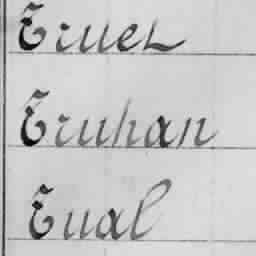 Truel
Truhan
Tual